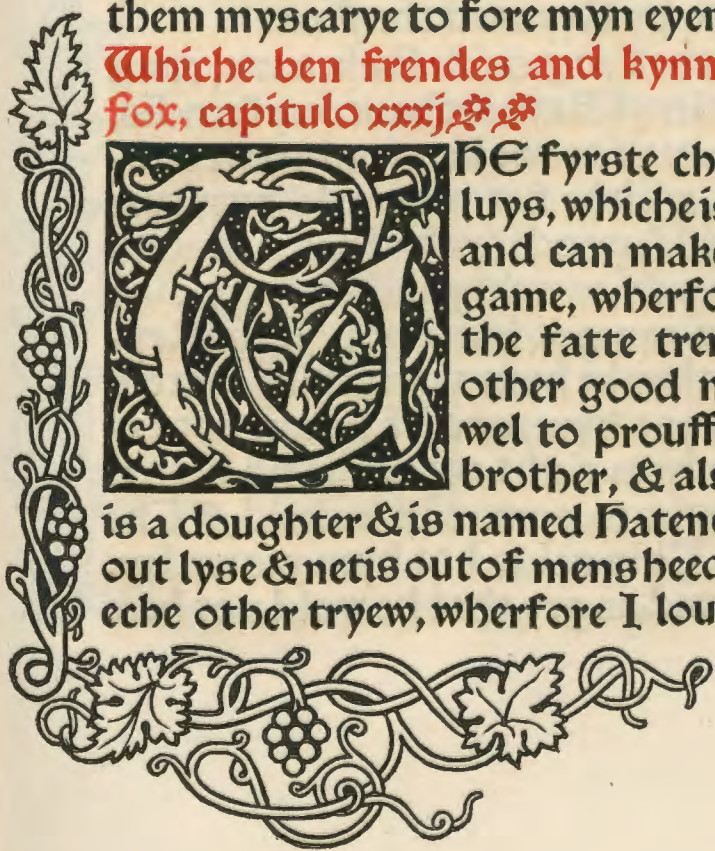 them myscarye to fore myn eyen
Whiche ben frendes and kynn
fox, capitulo xxxj
THE fyrste ch
luys, whiche is
and can make
game, wherfo
the fatte tren
other good m
wel to prouff
brother, & als
is a doughter & is named Hatene
out lyse & netis out of mens heed
eche other tryew, wherfore I lou